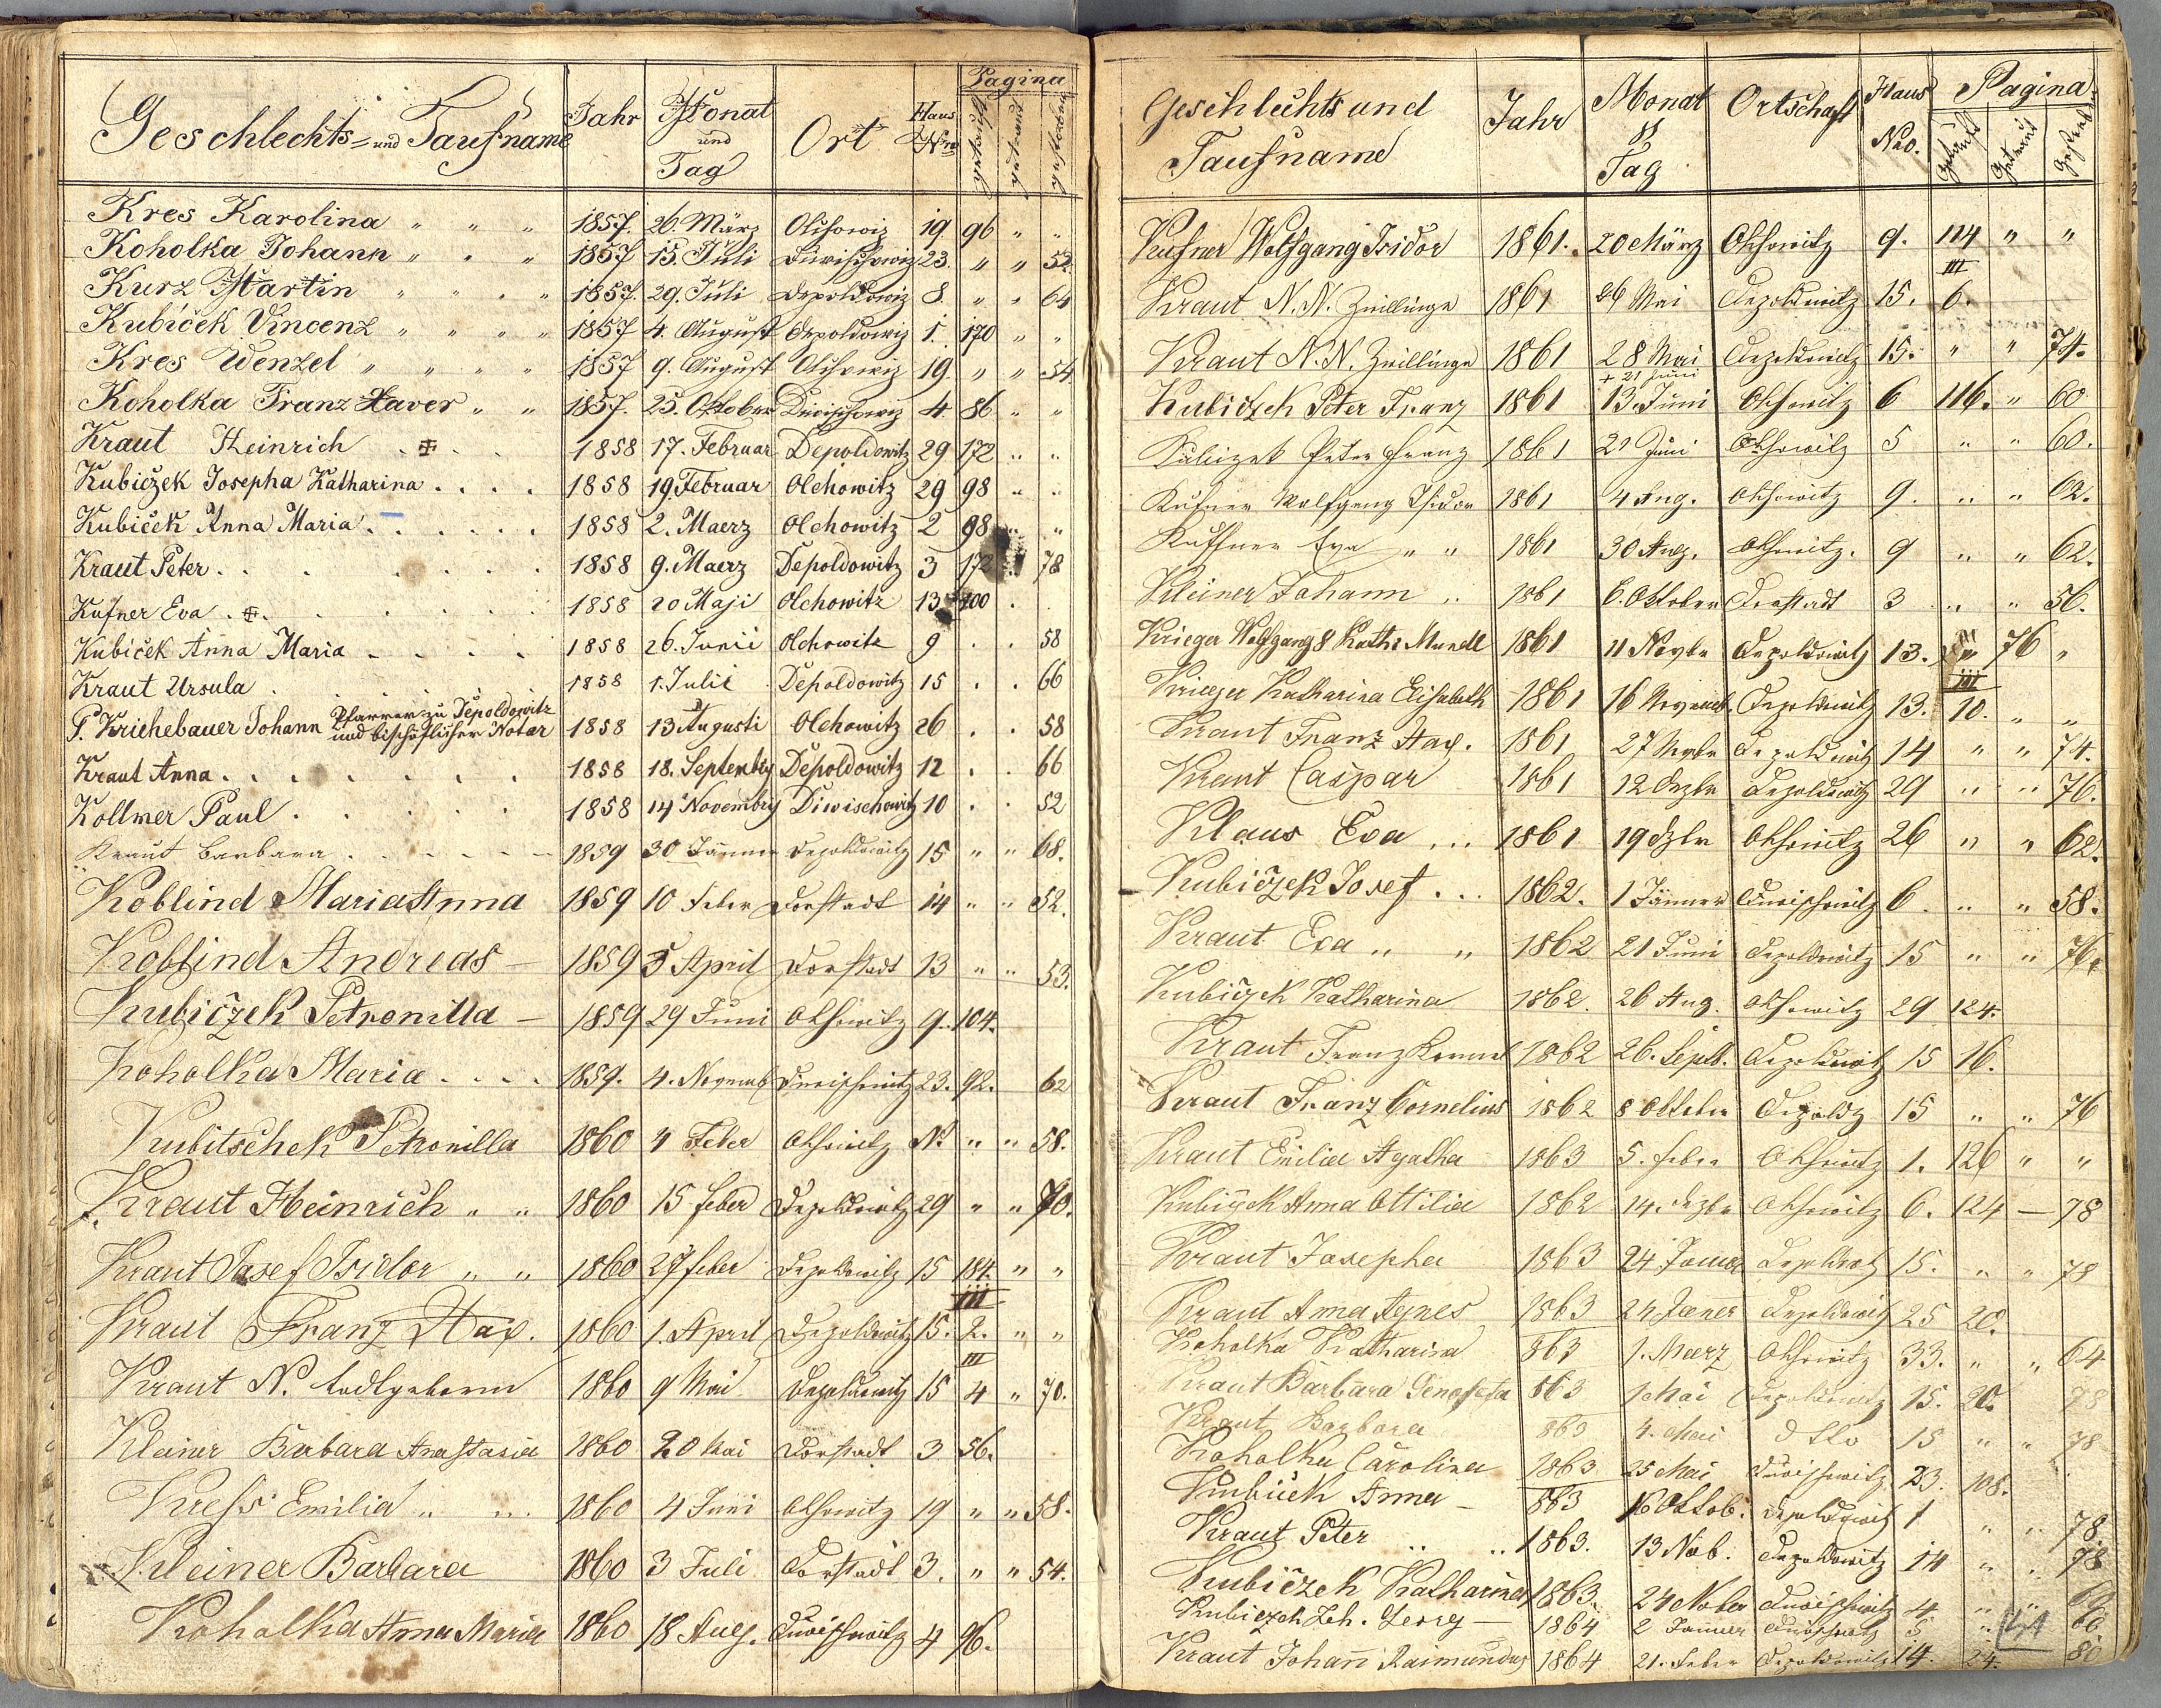 Geschlechts= und Taufname Jahr Monat und Tag Ort Haus Nro Pagina getauft getraut gestorben
Kres Karolina " " " 1857. 26. März Olchowiz 19 96 " "
Koholka Johann " " " 1857 15. Juli Diwischowiz 23. " " 52.
Kurz Martin " " " " 1857. 29. Juli Depoldowiz 8. " " 64
Kubíček Vincenz " " " " 1857 4. August Depoldowiz 1. 170 " "
Kres Wenzel " " " " 1857 9. August Olchowiz 19. " " 54
Koholka Franz Xaver " " 1857. 25. Oktober Diwischowiz 4 86 " "
Kraut Heinrich . . . 1858 17. Februar Depoldowitz 29 172 " "
Kubiczek Josepha Katharina . . . . 1858 19. Februar Olchowitz 29 98 " "
Kubiček Anna Maria . . . . . . 1858 2. Maerz Olchowitz 2 98 " "
Kraut Peter . . . . . . . 1858 9. Maerz Depoldowitz 3 172 78
Kufner Eva . . . . . . 1858 20 Maji Olchowitz 13 100 . .
Kubiček Anna Maria . . . . 1858 26. Junii Olchowitz 9 . . 58
Kraut Ursula . . . . . 1858 1. Julii Depoldowitz 15 . . 66
P. Kriehebauer Johann Pfarrer zu Depoldowitz und bischöflicher Notar 1858 13 Augusti Olchowitz 26 . . 58
Kraut Anna . . . . . . . 1858 18. Septembr Depoldowitz 12 . . 66
Kollmer Paul . . . . . 1858 14 Novembr Diwischowitz 10 . . 52
Kraut Barbara . . . . . 1859 30 Jänner Depoldowitz 15 " " 68.
Koblind Maria Anna 1859 10 Feber Dorstadt 14 " " 52.
Koblind Andreas 1859 5 April Dorstadt 13 " " 53.
Kubiczek Petronilla 1859 29 Juni Olchowitz 9. 104.
Koholka Maria . . . . 1859. 4. Novemb Diwischowitz 23. 92. 62
Kubitschek Petronilla 1860 4 Feber Olchowitz N. " " 58.
Kraut Heinrich " " 1860 15 Feber Depoldowitz 29 " " 70.
Kraut Josef Isidor " " 1860 27 Feber Depoldowitz 15 184. " "
Kraut Franz Xav. 1860 1. April Depoldowitz 15. III 2. " "
Kraut N. todtgeboren 1860 9 Mai Depoldowitz 15 III 4 " 70.
Kleiner Barbara Anastasia 1860 20 Mai Dorstadt 3 56.
Kreß Emilia " " 1860 4 Juni Olchowitz 19 " " 58.
Kleiner Barbara 1860 3 Juli Dorstadt 3. " " 54.
Koholka Anna Maria 1860 18 Aug. Diwischowitz 4 96.
Geschlechts und Taufname Jahr Monat & Tag Ortschaft Haus Nro. Pagina. Getauft Getraut Gestorb
Kufner Wolfgang Isidor 1861. 20 März Olchowitz 9. 114 " "
Kraut N. N. Zwillinge 1861 26 Mai Depoldowitz 15. III 6.
Kraut N. N. Zwillinge 1861 28 Mai Depoldowitz 15. " " 74.
Kubiczek Peter Franz 1861 + 21 Juni 13. Juni Olchowitz 6 116. " 60
Kubiczek Peter Franz 1861 21 Juni Olchowitz 5 " " 60.
Kufner Wolfgang Isidor 1861 4 Aug. Olchowitz 9. " " 62.
Kuffner Eva " " 1861 30 Aug. Olchowitz. 9 " " 62.
Kleiner Johann " 1861 6. Oktober Dorstadt 3 " " 56.
Krieger Wolfgang & Kath: Mundl 1861 11 Novbr Depoldowitz 13. 76 "
Krieger Katharina Elisabeth 1861 16 Novemb. Depoldowitz 13. III 10. " "
Kraut Franz Xav. 1861 27 Novbr Depoldowitz 14 " " 74.
Kraut Caspar 1861 12 Dezbr Depoldowitz 29 " " 76.
Klaus Eva . . . 1861 19 Dzbr Olchowitz 26 " " 62.
Kubiczek Josef . . . 1862. 1 Jänner Diwischowitz 6. " " 58.
Kraut Eva " " 1862 21 Juni Depoldowitz 15 " " 76.
Kubiczek Katharina 1862. 26 Aug. Olchowitz 29 124.
Kraut Franz Kornel 1862 26. Septb. Depoldowitz 15 16.
Kraut Franz Cornelius 1862 8 Oktober Depoldz 15 " " 76
Kraut Emilia Agatha 1863 5. Feber Olchowitz 1. 126 " "
Kubiczek Anna Ottilia 1862 14. Dezbr Olchowitz 6. 124 — 78
Kraut Josepha 1863 24 Jänner Depoldowitz 15. " " 78
Kraut Anna Agnes 1863 24 Jänner Depoldowitz 25 20.
Koholka Katharina 863 1. Maerz Olchowitz 33. " " 64
Kraut Barbara Genofefa 863 1 Mai Depoldowitz 15. 20. 78
Kraut Barbara 863 4. Mai dtto 15 " " 78
Koholka Carolina 1863 25 Mai Diwischowitz 23. 108.
Kubicek Anna 863 16 Oktob. Depoldowitz 1 " " 78.
Kraut Peter " " 1863. 13 Nov. Depoldowitz 14 " " 78
Kubiczek Katharina 1863. 24 Nober Diwischowitz 4 " " 60
Kubiczek Joh. Georg 1864 2 Jänner Diwischowitz 5 " 60.
Kraut Johann Raimundus 1864 21. Feber Depoldowitz 14. 24. 80
41